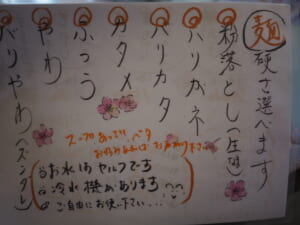 麺硬さ選べます
粉落とし(圧倒)
ハリガネ
バリカタ
カタメ
ふつう
やわ
バリやわ(ズンダレ)
スープあっさり、ベタ
お好みあればお声掛け下さい
お水はセルフです
冷水機があります
ご自由にお使い下さい...